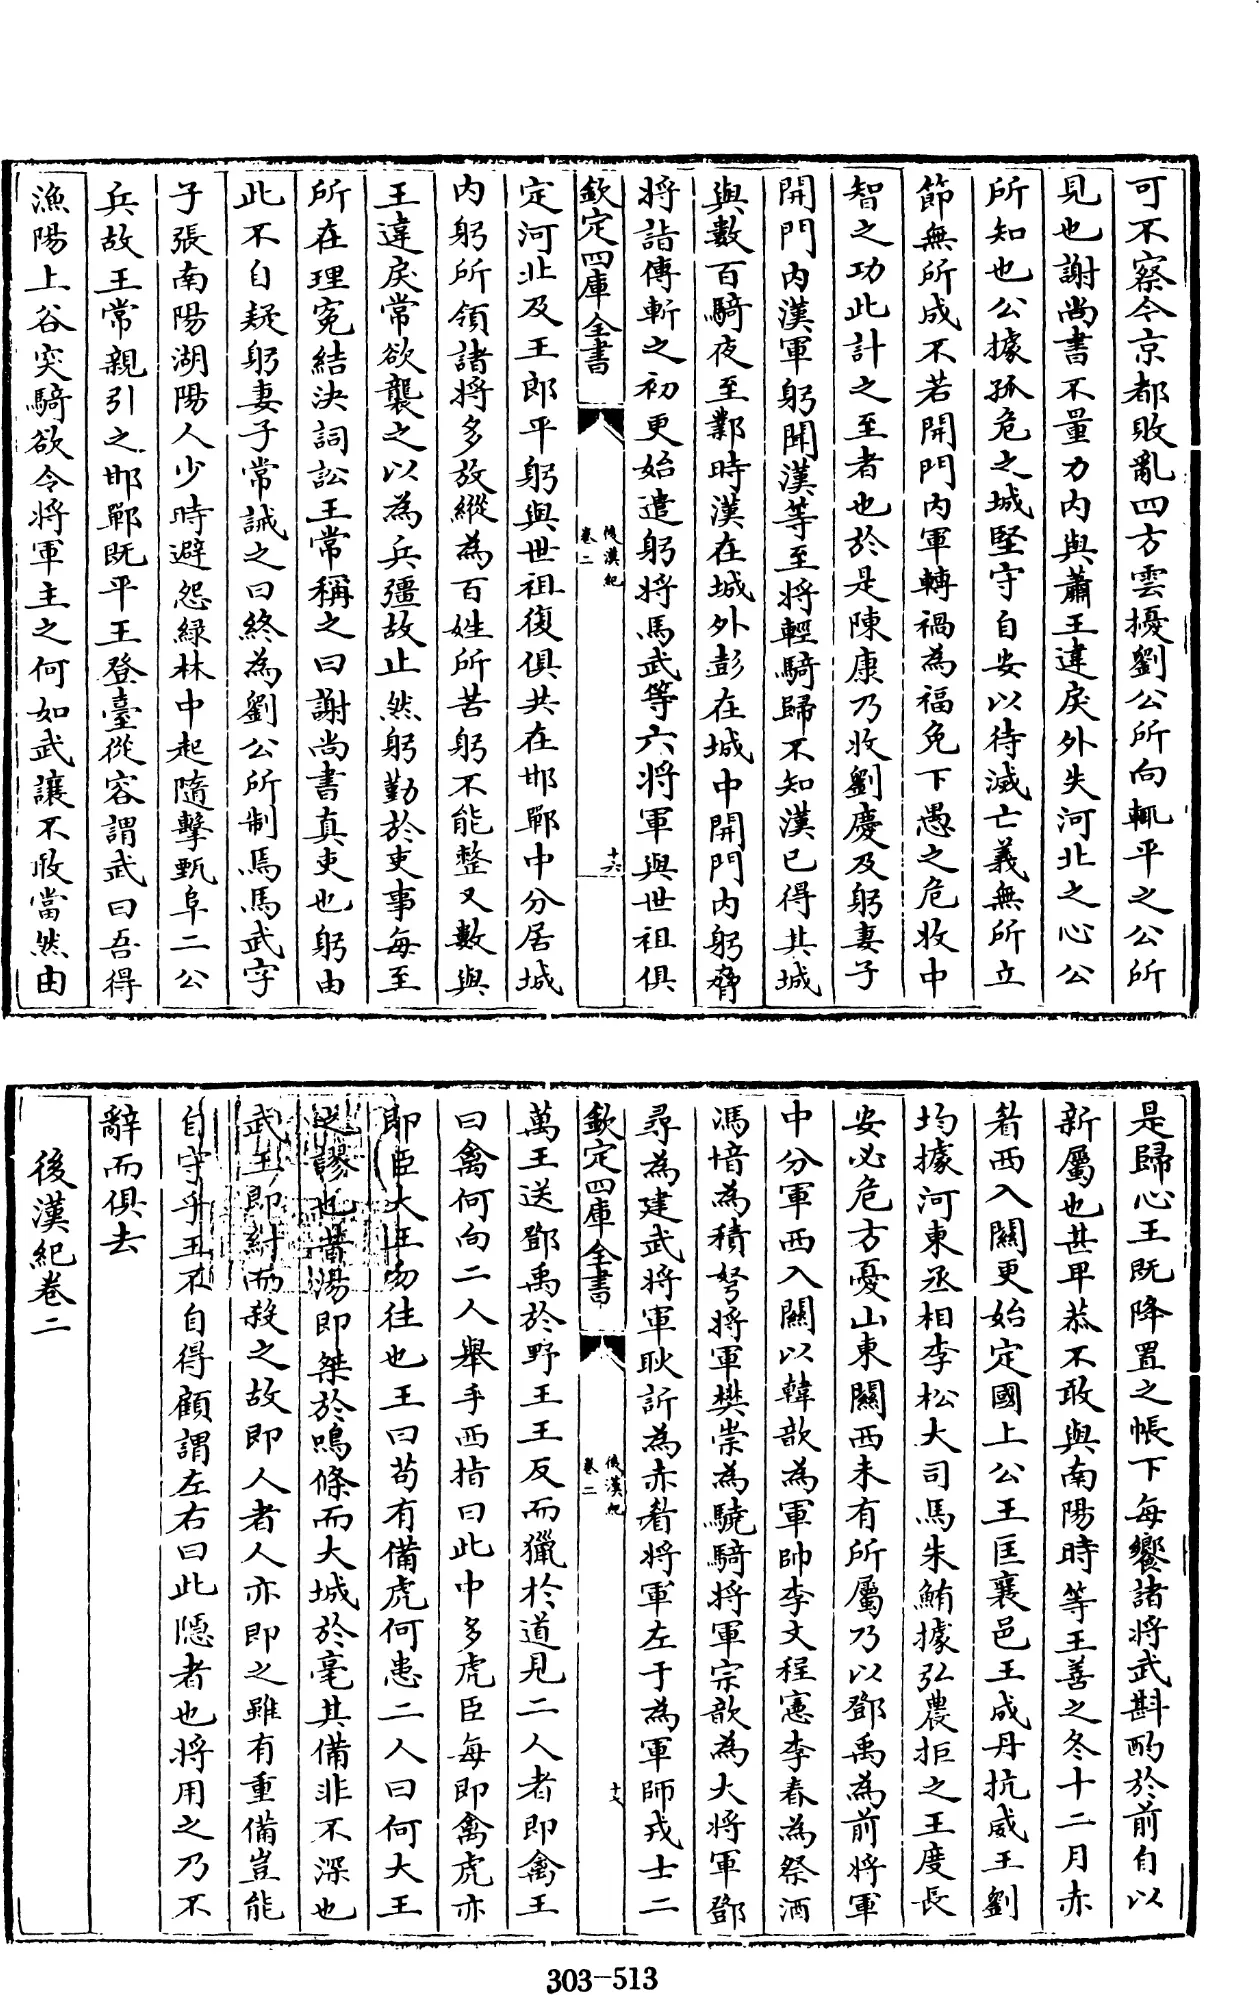 可不察今京都敗亂四方雲擾劉公所向輒平之公所
見也謝尚書不量力内與蕭王違戾外失河北之心公
所知也公據孤危之城堅守自安以待滅亡義無所立
節無所成不若開門内軍轉禍為福免下愚之危收中
智之功此計之至者也於是陳康乃收劉慶及躬妻子
開門内漢軍躬聞漢等至將輕騎歸不知漢已得其城
與數百騎夜至鄴時漢在城外彭在城中開門内躬脅
將詣傳斬之初更始遣躬將馬武等六將軍與世祖俱
欽定四庫全書
後漢紀
卷二
十六
定河北及王郎平躬與世祖復俱共在邯鄲中分居城
内躬所領諸將多放縱為百姓所苦躬不能整又數與
王違戾常欲襲之以為兵彊故止然躬勤於吏事每至
所在理寃結決詞訟王常稱之曰謝尚書真吏也躬由
此不自疑躬妻子常誡之曰終為劉公所制焉馬武字
子張南陽湖陽人少時避怨緑林中起隨擊甄阜二公
兵故王常親引之邯鄲既平王登臺從容謂武曰吾得
漁陽上谷突騎欲令將軍主之何如武讓不敢當然由
是歸心王既降置之帳下每饗諸將武斟酌於前自以
新屬也甚卑恭不敢與南陽時等王善之冬十二月赤
眉西入關更始定國上公王匡襄邑王成丹抗威王劉
均據河東丞相李松大司馬朱鮪據弘農拒之王度長
安必危方憂山東關西未有所屬乃以鄧禹為前將軍
中分軍西入關以韓歆為軍帥李文程憲李春為祭酒
馮愔為積弩將軍樊崇為驍騎將軍宗歆為大將軍鄧
尋為建武將軍耿訢為赤眉將軍左于為軍師戎士二
欽定四庫全書
後漢紀
卷二
十七
萬王送鄧禹於野王王反而獵於道見二人者即禽王
曰禽何向二人舉手西指曰此中多虎臣每即禽虎亦
即臣大王勿往也王曰苟有備虎何患二人曰何大王
之謬也昔湯即桀於鳴條而大城於亳其備非不深也
武王即紂而殺之故即人者人亦即之雖有重備豈能
自守乎王不自得顧謂左右曰此隱者也將用之乃不
辭而俱去
後漢紀卷二
303-513